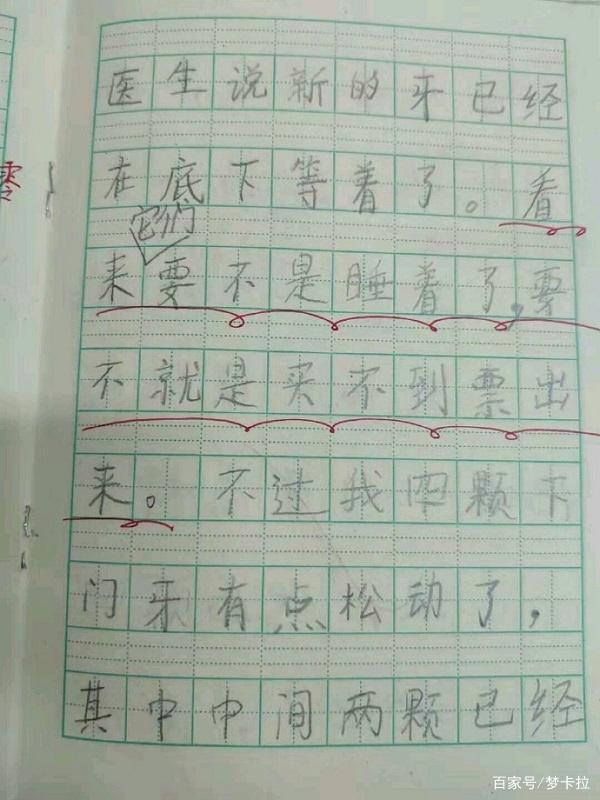 医生说新的牙已经
在底下等着了。看
它们
来要不是睡着了,要
不就是买不到票出
来。不过我四颗下
门牙有点松动了,
其中中间两颗已经
百家号/梦卡拉